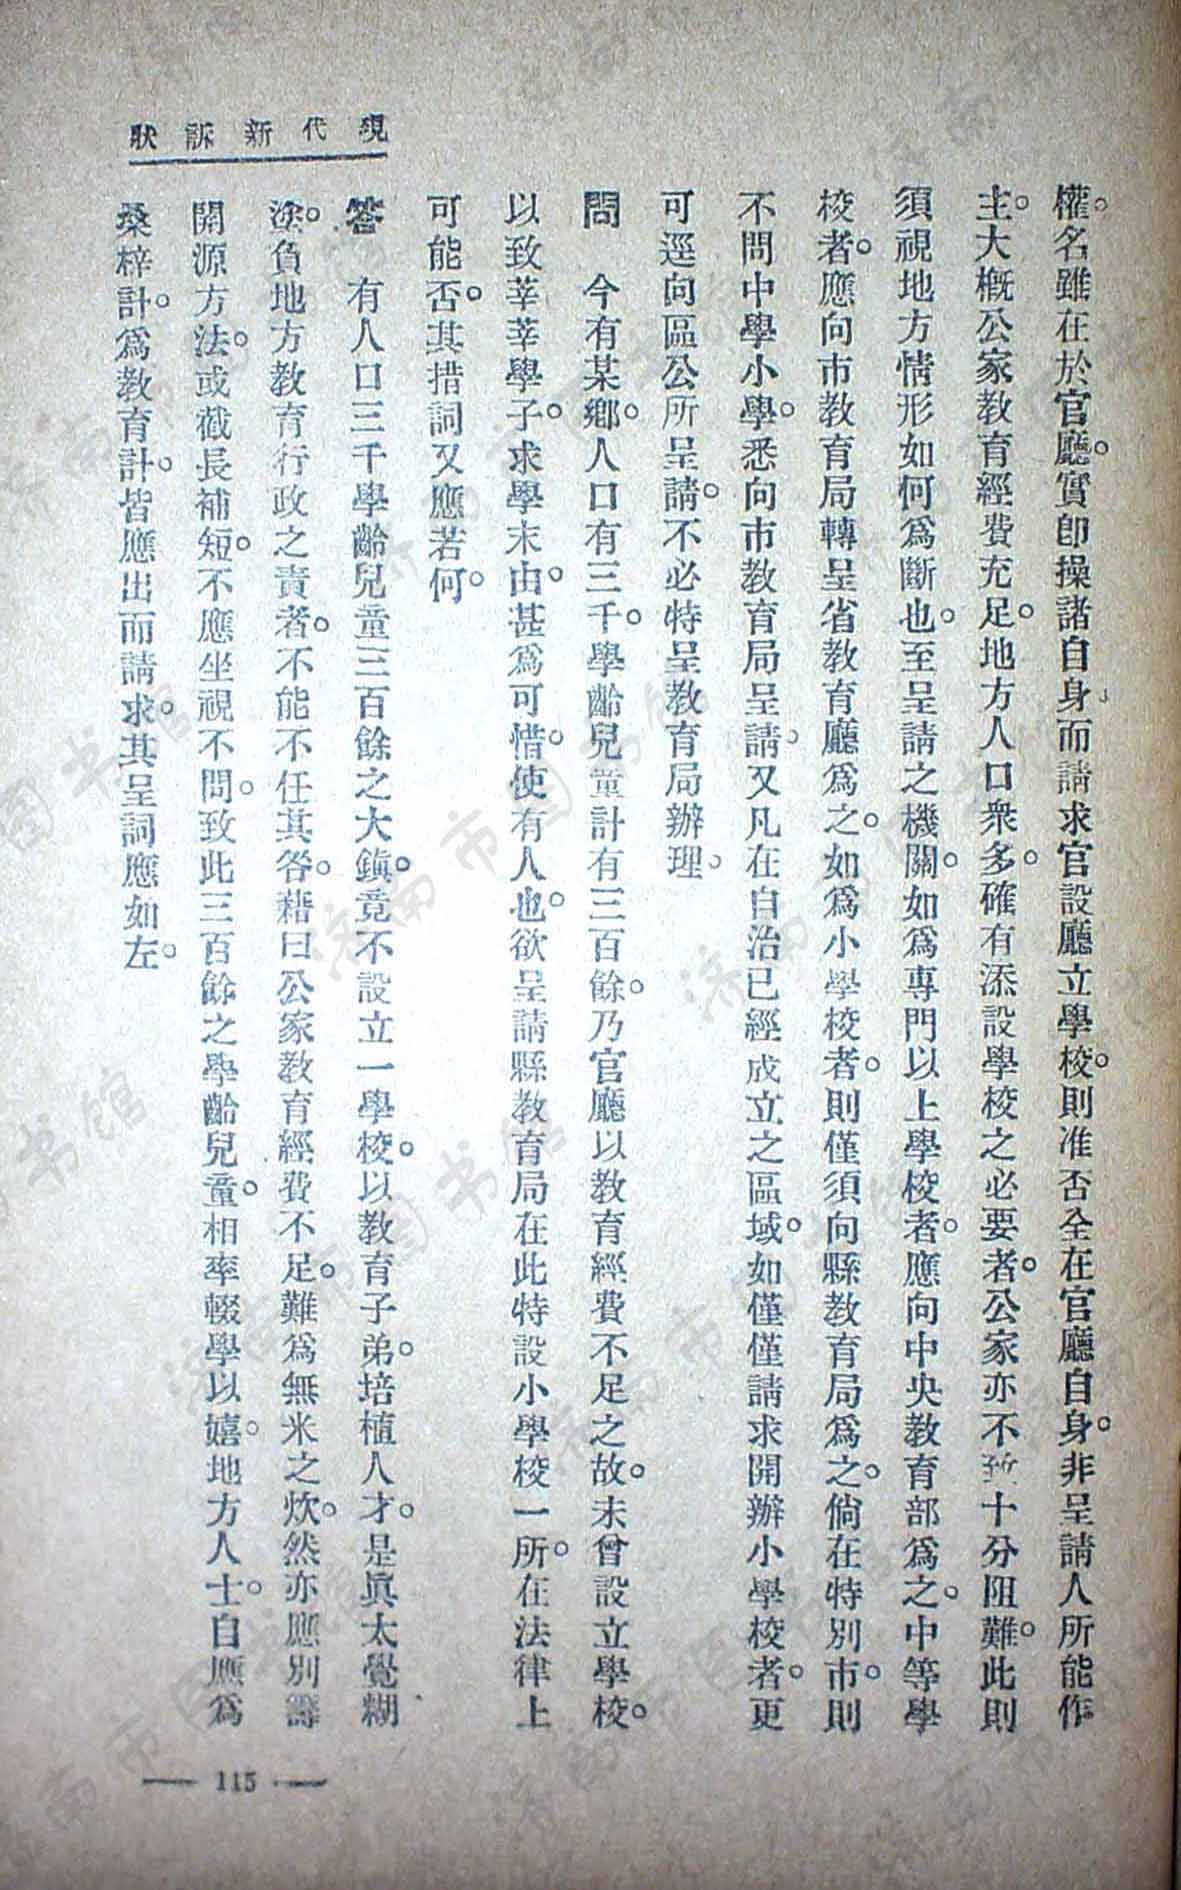 現代新訴狀
權。名雖在於官廳。實卽操諸自身、而請求官設廳立學校。則准否全在官廳自身。非呈請人所能作
主。大槪公家敎育經費充足。地方人口衆多。確有添設學校之必要者。公家亦不致十分阻難。此則
須視地方情形如何爲斷也。至呈請之機關。如爲專門以上學校者。應向中央敎育部爲之。中等學
校者。應向市敎育局轉呈省敎育廳爲之。如爲小學校者。則僅須向縣敎育局爲之。倘在特別市。則
不問中學小學。悉向市敎育局呈請。又凡在自治已經成立之區域。如僅僅請求開辦小學校者。更
可逕向區公所呈請。不必特呈敎育局辦理。
問　今有某鄕。人口有三千。學齡兒童計有三百餘。乃官廳以敎育經費不足之故。未曾設立學校。
以致莘莘學子。求學末由。甚爲可惜。使有人也。欲呈請縣敎育局在此特設小學校一所。在法律上
可能否。其措詞又應若何。
答　有人口三千學齡兒童三百餘之大鎭。竟不設立一學校。以敎育子弟。培植人才。是眞太覺糊
塗。負地方敎育行政之責者。不能不任其咎。藉曰公家敎育經費不足。難爲無米之炊。然亦應別籌
開源方法。或截長補短。不應坐視不問。致此三百餘之學齡兒童。相率輟學以嬉。地方人士。自應爲
桑梓計。爲敎育計。皆應出而請求。其呈詞應如左。
— 115 —